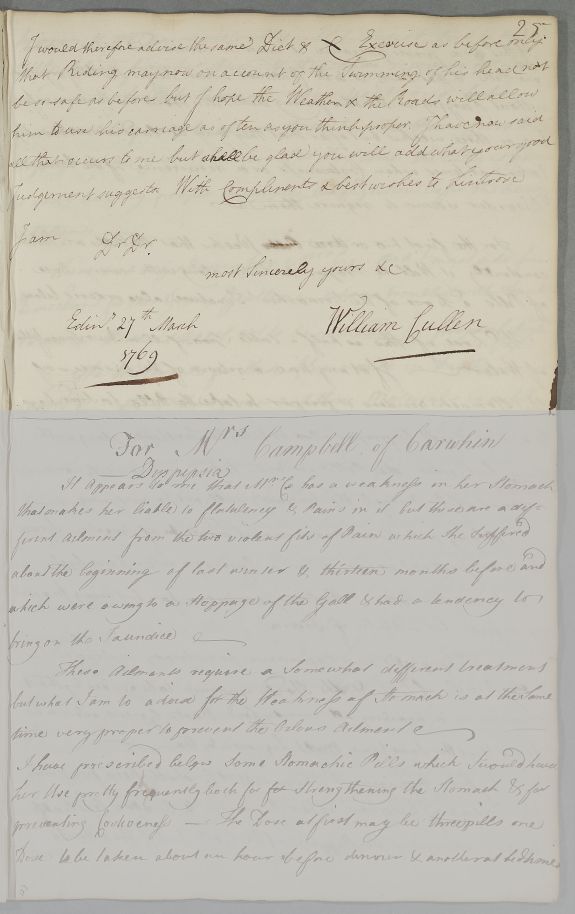 25
I would therefore advise the same Diet & Exercise as before only
that Riding may now on account of the Swimming of his head not
be so safe as before but I hope the Weather & the Roads will allow
him to use his carriage as often as you think proper. I have now said
all that occurs to me but shall be glad you will add what your good
Judgement suggests. With Complinents & best wishes to Lintrose
I am Dr. Dr.
most Sincerely yours &c
William Cullen
Edinr. 27th March
1769
For Mrs Campbell of Carwhin
Dispepsia
It appears to me that Mrs C. has a weakness in her Stomach
that makes her liable to flatulency & Pains in it but these are a dif-
ferent ailment from the two violent fits of Pain which she suffered
about the beginning of last winter & thirteen months before and
which were owing to a stoppage of the Gall & had a tendency to
bring on the Jaundice
These Ailments require a Somewhat different treatment
but what I am to advise for the Weakness of Stomach is at the same
time very proper to prevent the bilous Ailment
I have prescribed below Some Stomachic Pills which I would have
her Use pretty frequently both for for Strengthening the Stomach & for
preventing Costiveness — The Dose at first may be three pills one
Dose to be taken about an hour before dinner & another at bedtime